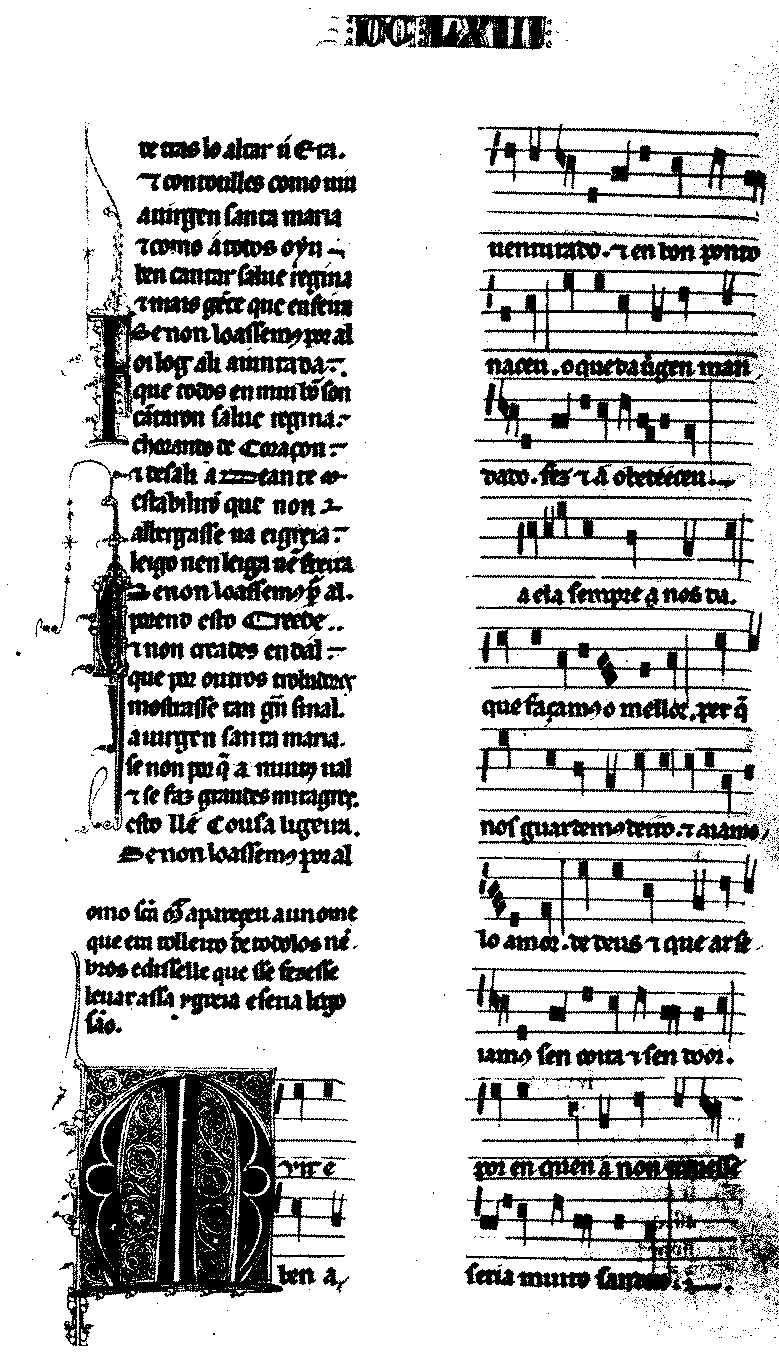 CCLXII
te tras lo altar ű Era.
⁊ con toulles como mui
a uirgen santa maria
⁊ como á todos oyu
ben cantar salue regina
⁊ mais gête que enfeux
Se non loassemꝯ por al
oi log ali aiuntada
que todos en mui bõ son
cãtaron salue regina
chorando de Coraçon
⁊ desali
estabiliró que non
albergasse na eigreia
leigo nen leiga
Se non loassemꝯ p̃ al.
porend esto Creede
⁊ non creades en dal
que por outros
mostrasse tan gũ sinal.
a uirgen santa maria.
se non por q̃ a muitꝯ ual
⁊ se faz grandes miragres.
esto llé Cousa ligeira.
Se non loassemꝯ por al
omo sc̃a apareçeu a un ome
que era tolleito de todolos né
bros e disselle que sse fezesse
leuar a ssa ygreia e seria logo
são.
M
ben a
uenturado. ⁊ en bon ponto
naceu. o que da uirgen man
dado. fez ⁊ a obedeceu.
a ela sempre a nos da.
que façamꝯ o mellor. per q̃
nos guardemꝯ derro. ⁊ aiamꝯ
lo amor. de deus ⁊ que arse
iamo sen coita ⁊ sen door.
poi en quen á non
seria muito